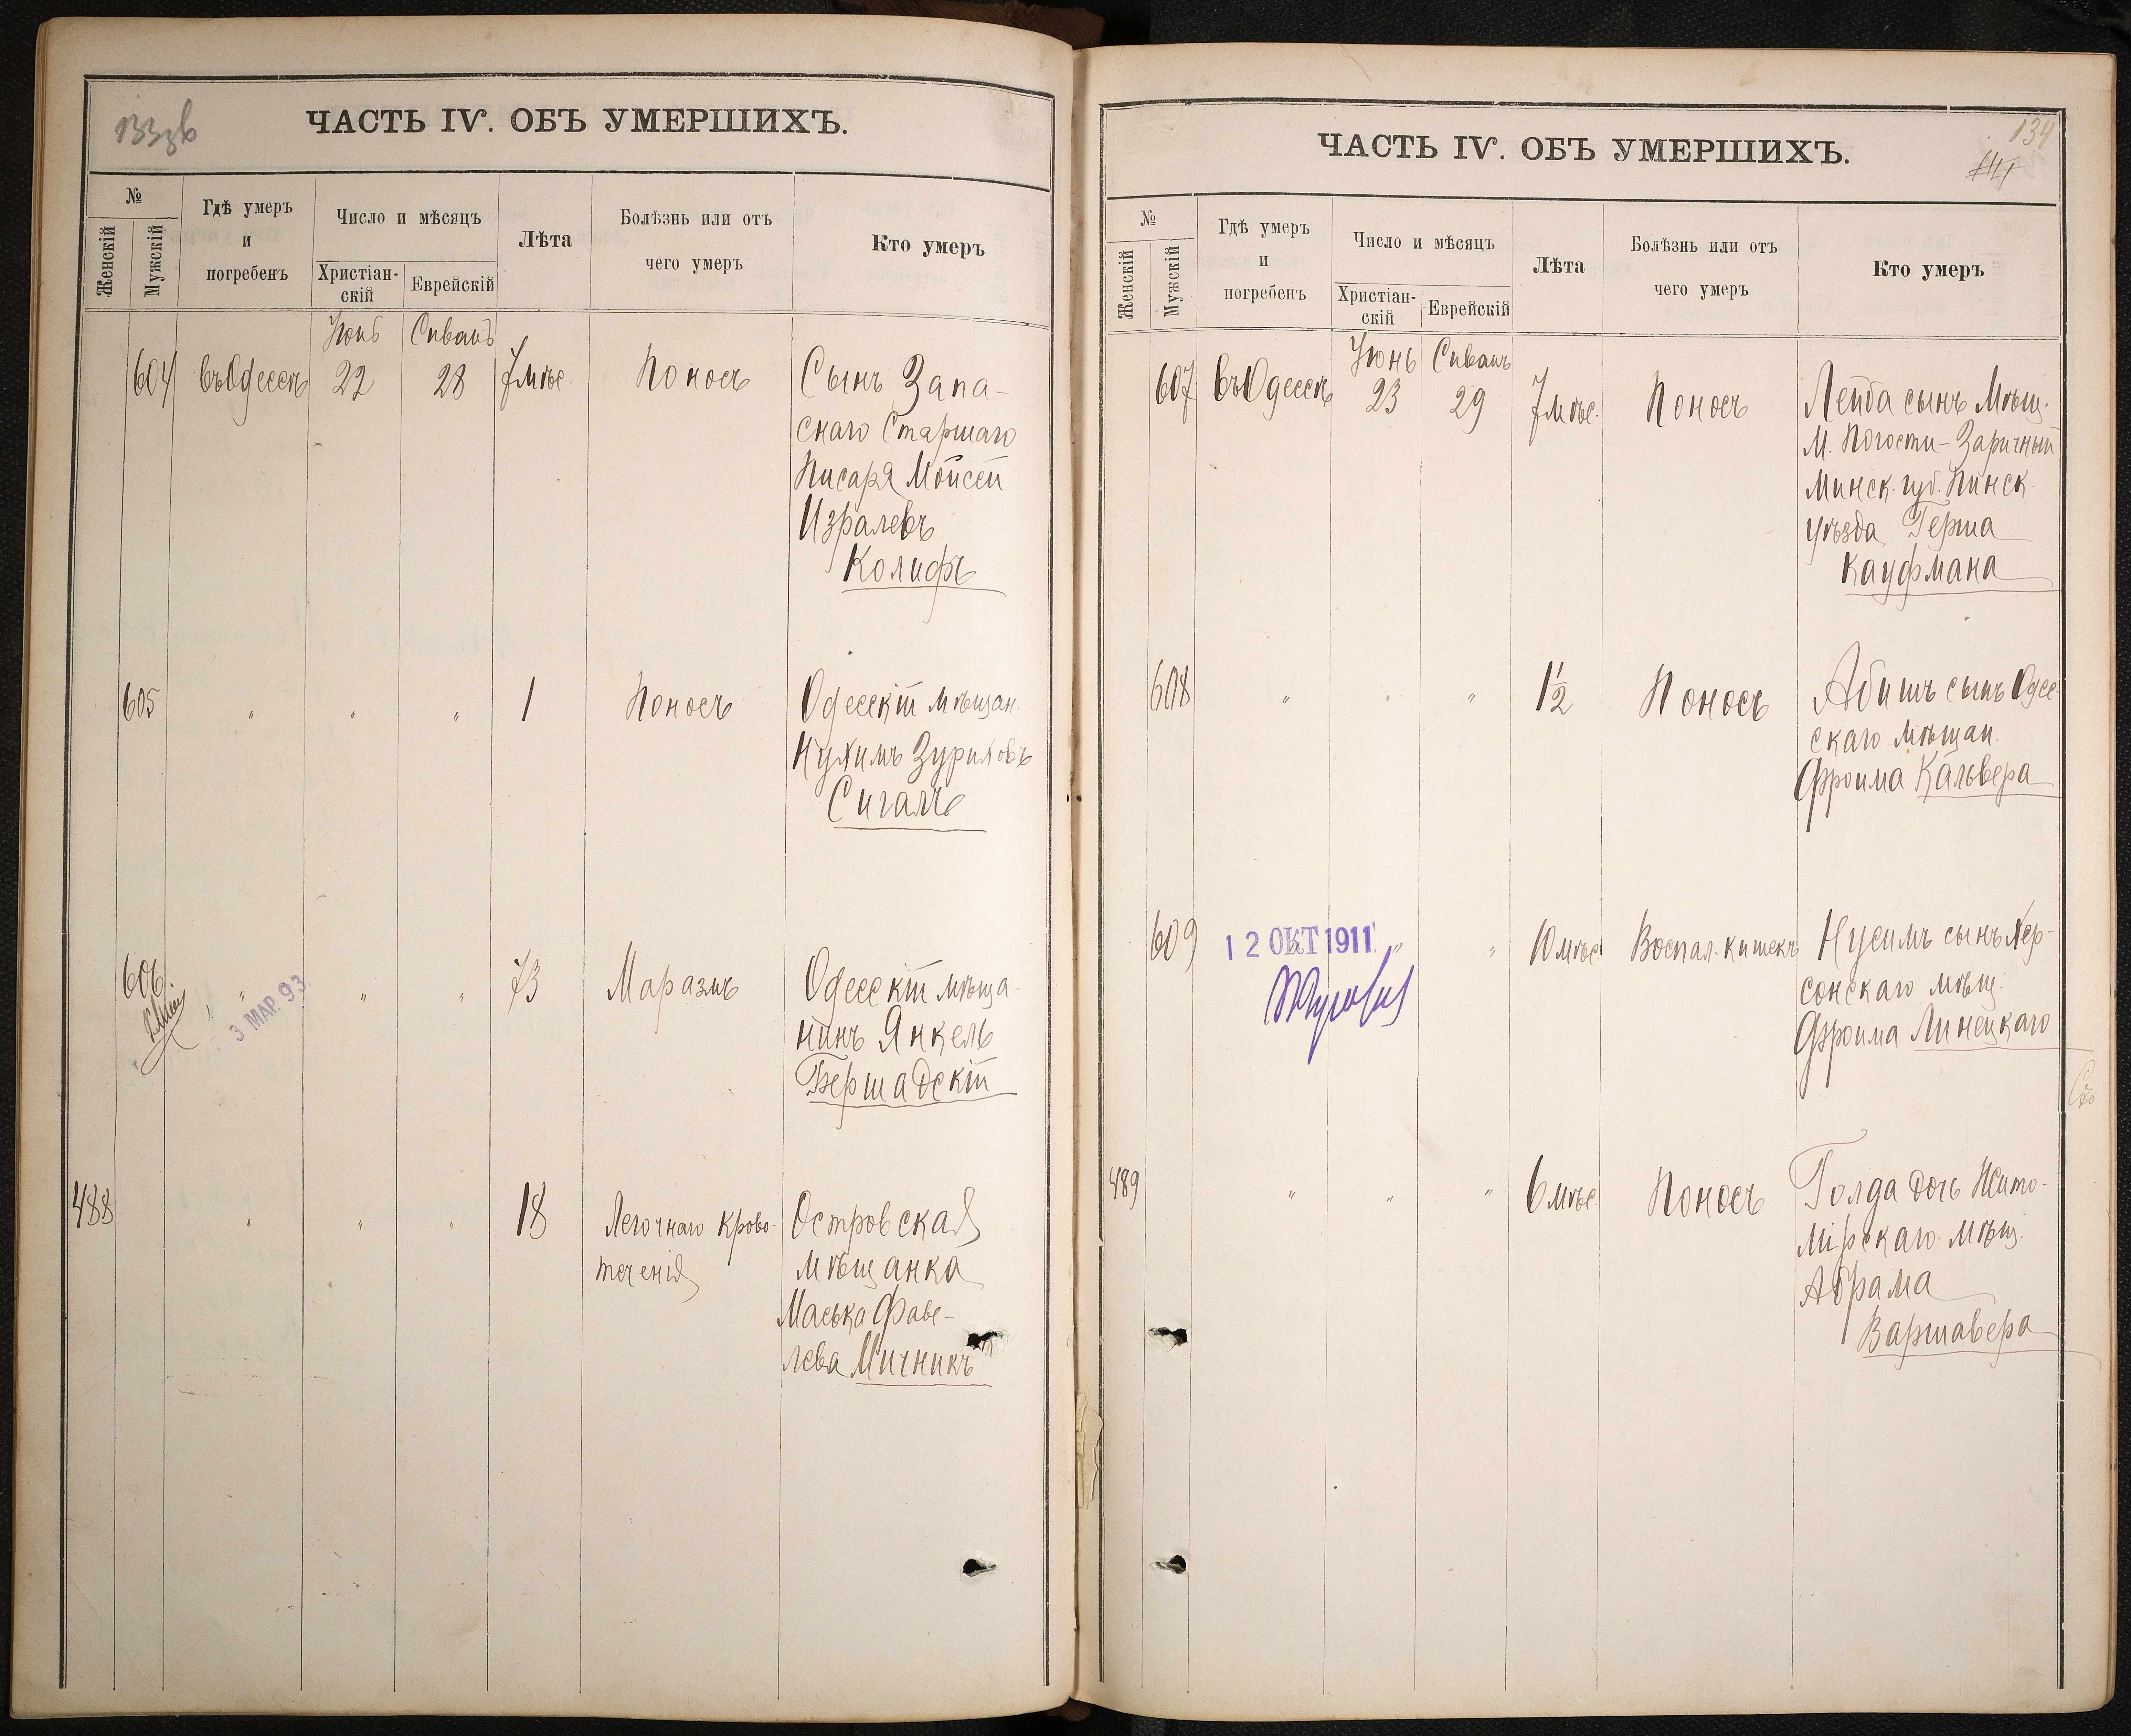 133об
ЧАСТЬ IV. ОБЪ УМЕРШИХЪ.
№
Женскій
Мужскій
Гдѣ умеръ
и
погребенъ
Число и мѣсяцъ
Христіан-
скій
Еврейскій
Лѣта
Болѣзнь или отъ
чего умеръ
Кто умеръ
Іюнь Сиванъ
604 въ Одессѣ 22 28 7 мѣс. Поносъ Сынъ Запа-
снаго Старшаго
Писаря Мойсей
Израилевъ
Колифъ
605 " " " 1 Поносъ Одесскій мѣщан.
Нухимъ Зуриховъ
Сигалъ
606 " " " 73 Маразмъ Одесскій мѣща-
нинъ Янкель
Бершадскій
3 МАР. 93
488 " " " 18 Легочнаго крово- Островская
теченія мѣщанка
Маська Фаве-
лева Мичникъ
ЧАСТЬ IV. ОБЪ УМЕРШИХЪ.
134
№
Женскій
Мужскій
Гдѣ умеръ
и
погребенъ
Число и мѣсяцъ
Христіан-
скій
Еврейскій
Лѣта
Болѣзнь или отъ
чего умеръ
Кто умеръ
Іюнь Сиванъ
607 въ Одессѣ 23 29 7 мѣс. Поносъ Лейба сынъ Мѣщ.
М. Погости-Заричный
Минск. губ. Пинск.
уѣзда Герша
Кауфмана
608 " " " 1½ Поносъ Абишъ сынъ Одес
скаго мѣщан.
Фроима Кальвера
609 " " " 10 мѣс. Воспал. кишекъ Нусимъ сынъ Хер-
12 ОКТ 1911
сонскаго мѣщ.
Фроима Линецкаго
489 " " " 6 мѣс. Поносъ Голда дочь Жито-
мірскаго мѣщ.
Абрама
Варшавера